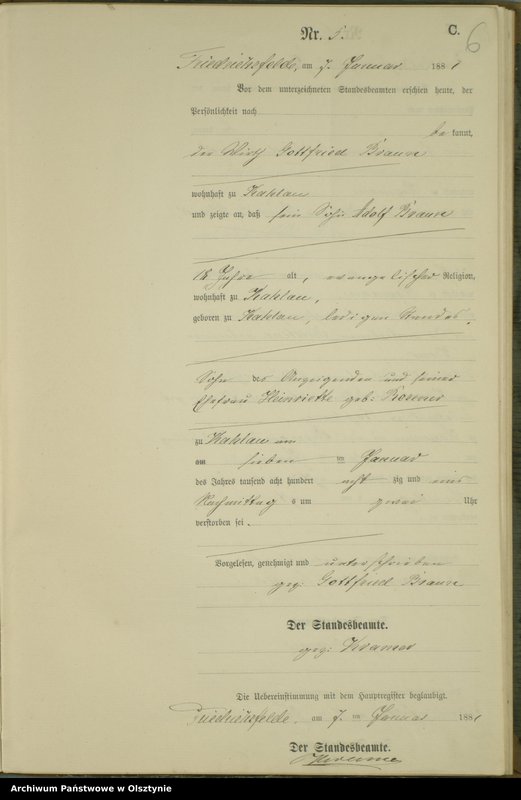 Nr. 5.
C.
6
Friedrichsfelde, am 7. Januar 1881
Vor dem unterzeichneten Standesbeamten erschien heute, der
Persönlichkeit nach
bekannt,
der Wirth Gottfried Braun
wohnhaft zu Kahlau
und zeigte an, daß sein Sohn Adolf Braun
Jahre alt, evangelischer Religion,
wohnhaft zu Kahlau,
geboren zu Kahlau, ledigen Standes,
Sohn des Anzeigenden und seiner
Ehefrau Heinriette geb:
zu Kahlau am
am sieben ten Januar
des Jahres tausend acht hundert acht zig und eins
Nachmittags um zwei Uhr
verstorben sei.
Vorgelesen, genehmigt und unterschrieben
gez: Gottfried Braun
Der Standesbeamte.
gez:
Die Uebereinstimmung mit dem Hauptregister beglaubigt.
Friedrichsfelde, am 7. ten Januar 1881
Der Standesbeamte.
Archiwum Państwowe w Olsztynie